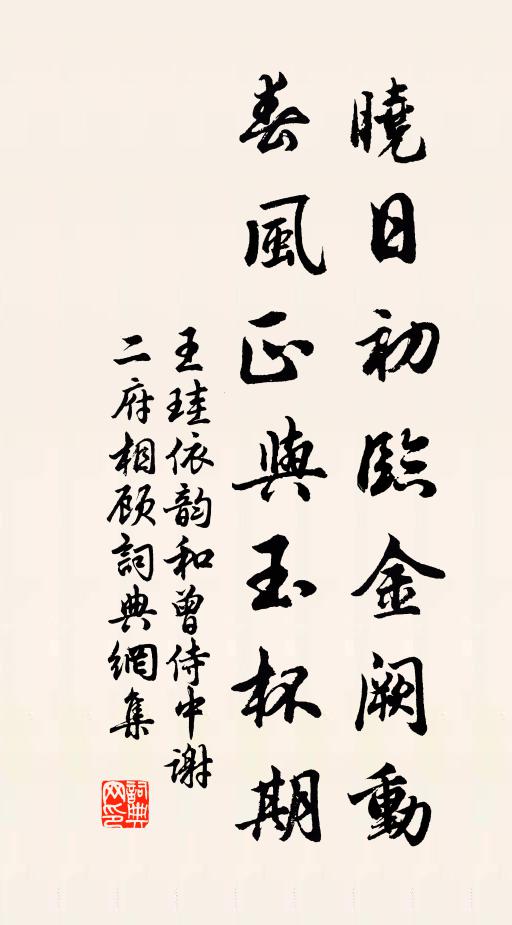 曉日初臨金闕動
春風正與玉杯期
王珪依韵和曾侍中謝
二府相顾詞典網集
詞典网印